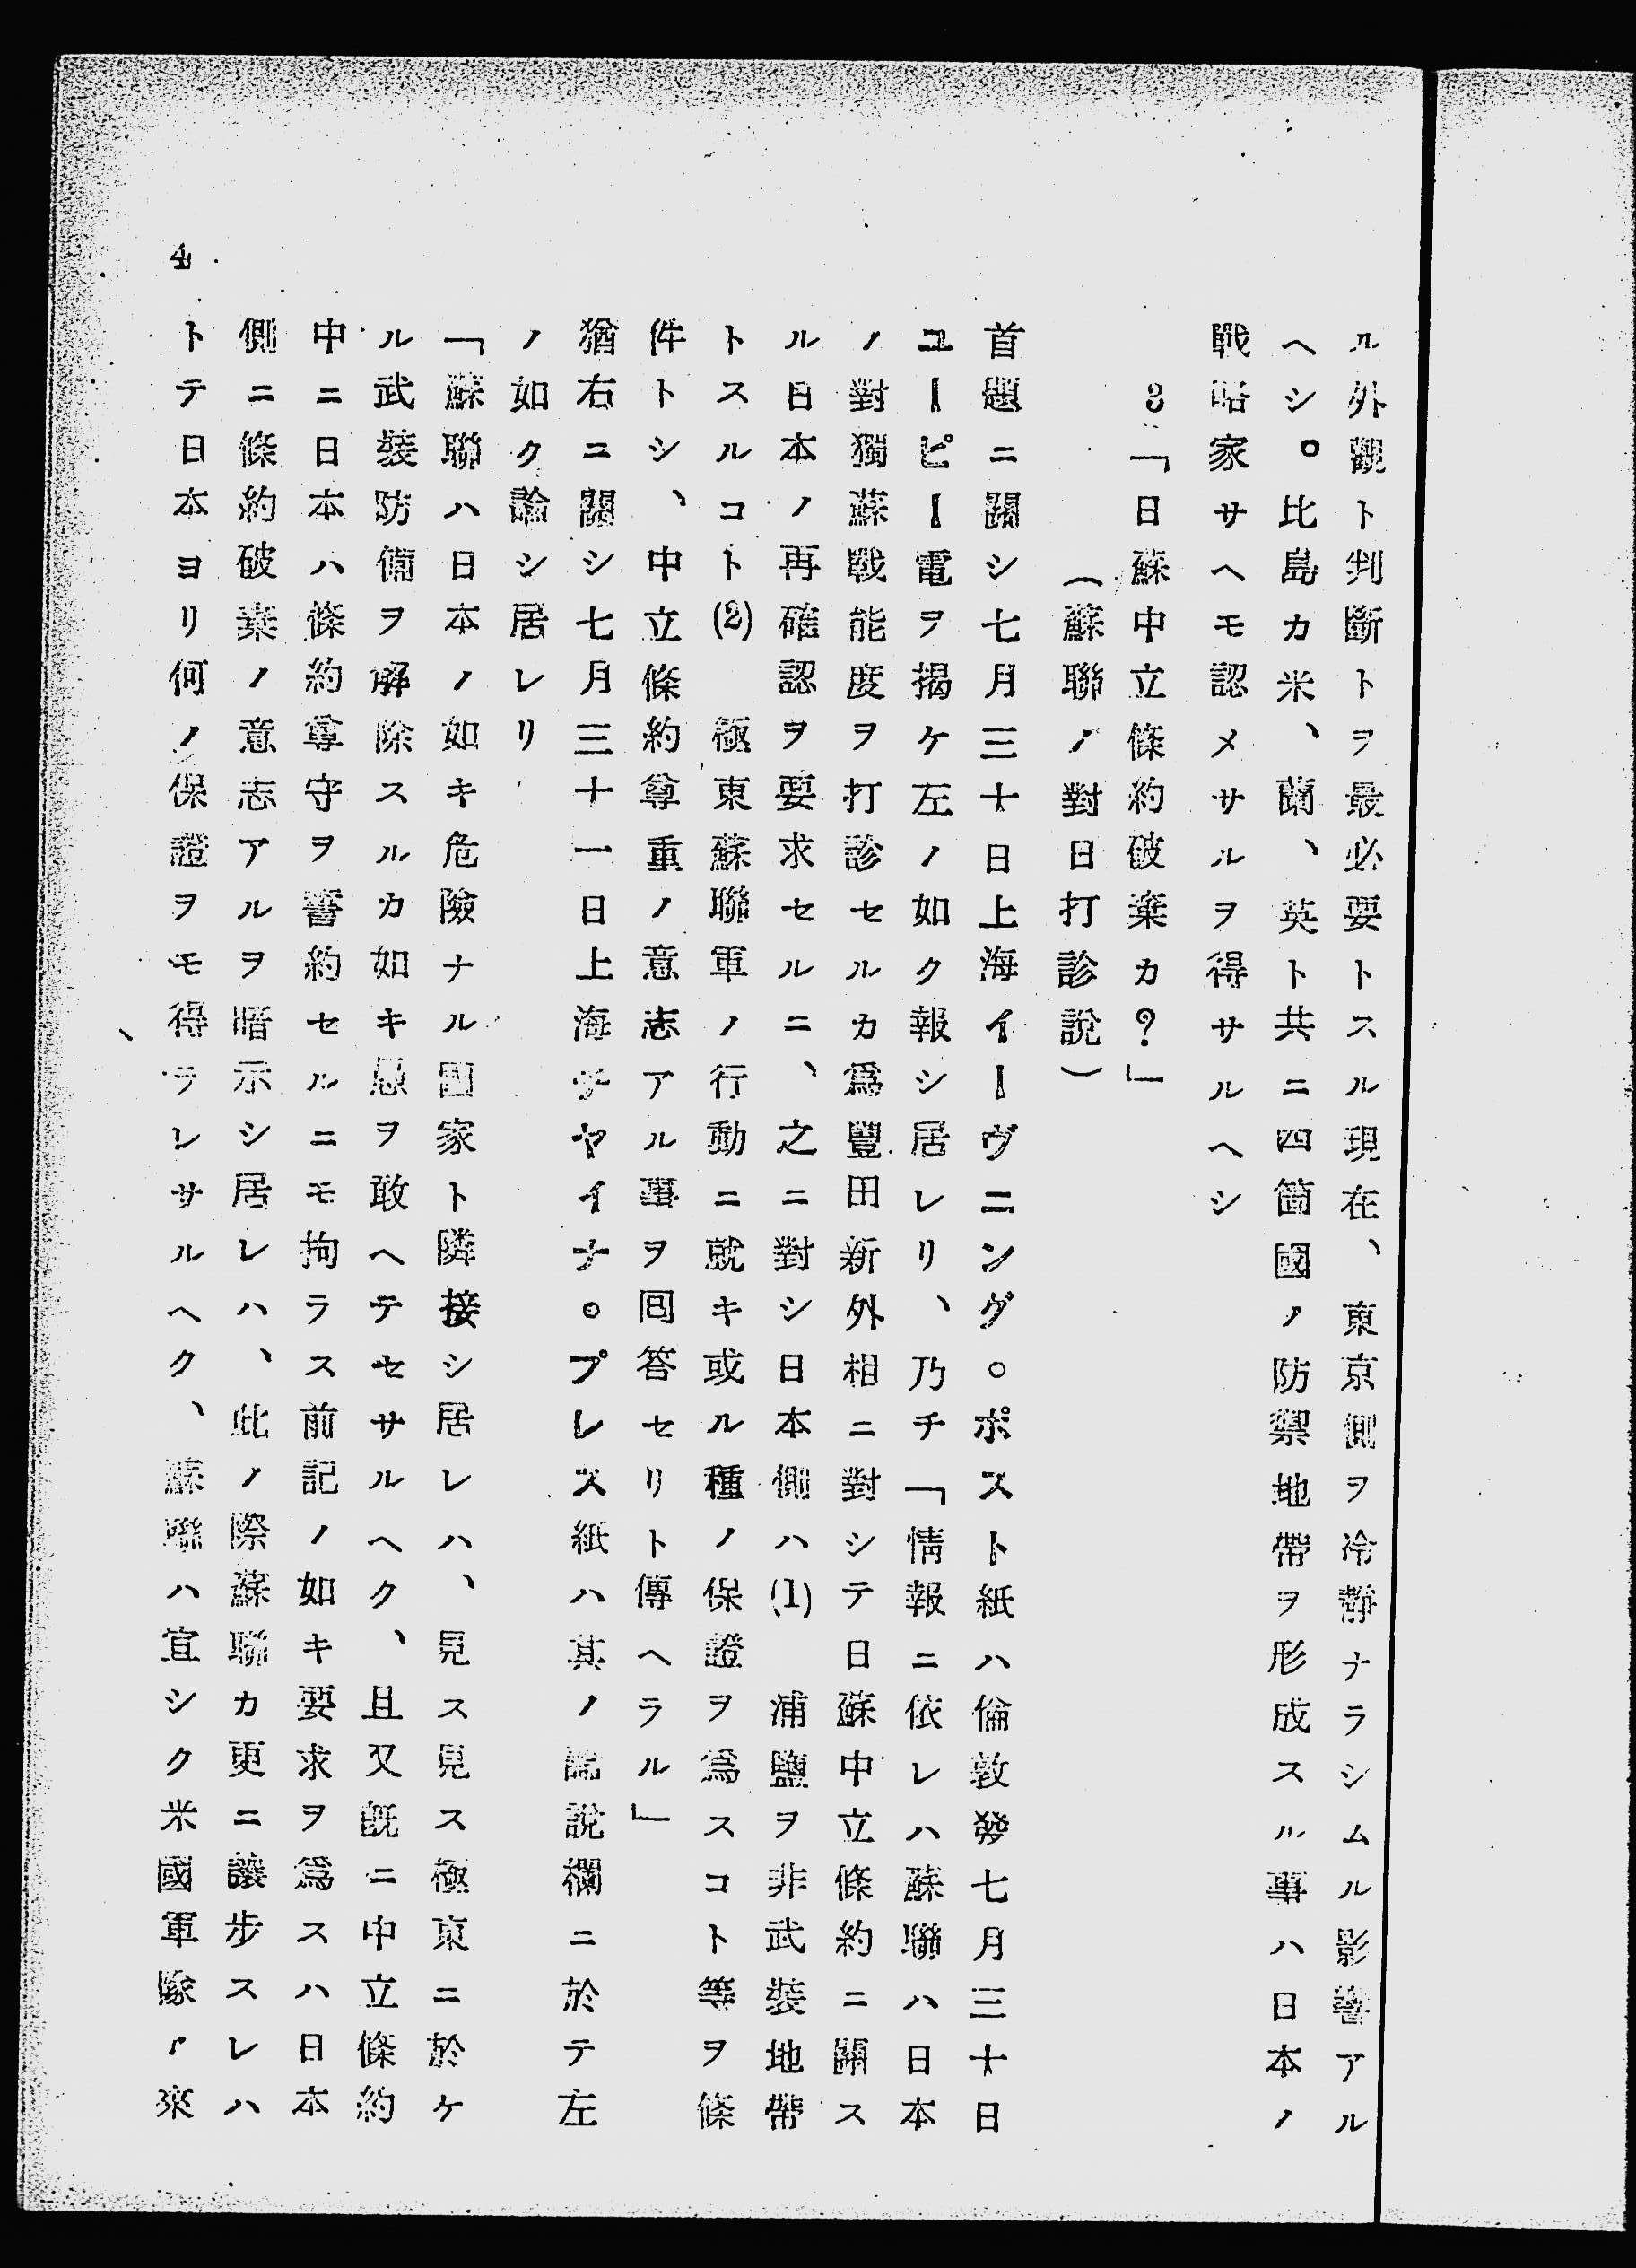 ル外觀ト判斷トヲ最必要トスル現在、東京側ヲ冷靜ナラシムル影響アル
ヘシ。比島カ米、蘭、英ト共ニ四箇國ノ防禦地帶ヲ形成スル事ハ日本ノ
戰略家サヘモ認メサルヲ得サルヘシ
3「日蘇中立條約破棄カ?」
(蘇聯ノ對日打診説)
首題ニ關シ七月三十日上海イーヴニング。ポスト紙ハ倫敦發七月三十日
ユーピー電ヲ揭ケ左ノ如ク報シ居レリ、乃チ「情報ニ依レハ蘇聯ハ日本
ノ對獨蘇戰能度ヲ打診セルカ爲豐田新外相ニ對シテ日蘇中立條約ニ關ス
ル日本ノ再確認ヲ要求セルニ、之ニ對シ日本側ハ(1) 浦鹽ヲ非武裝地帶
トスルコト(2) 極東蘇聯軍ノ行動ニ就キ或ル種ノ保證ヲ爲スコト等ヲ條
件トシ、中立條約尊重ノ意志アル事ヲ囘答セリト傳ヘラル」
猶右ニ關シ七月三十一日上海チヤイナ。プレス紙ハ其ノ論説欄ニ於テ左
ノ如ク論シ居レリ
「蘇聯ハ日本ノ如キ危險ナル國家ト隣接シ居レハ、見ス見ス極東ニ於ケ
ル武裝防備ヲ解除スルカ如キ愚ヲ敢ヘテセサルヘク、且又既ニ中立條約
中ニ日本ハ條約尊守ヲ誓約セルニモ拘ラス前記ノ如キ要求ヲ爲スハ日本
側ニ條約破棄ノ意志アルヲ暗示シ居レハ、此ノ際蘇聯カ更ニ讓步スレハ
トテ日本ヨリ何ノ保證ヲモ得ラレサルヘク、蘇聯ハ宜シク米國軍隊ノ來
4